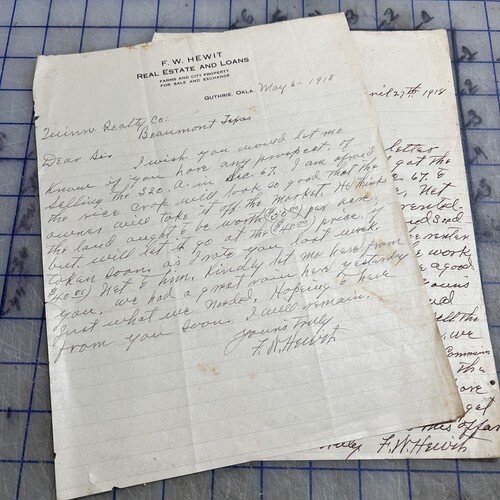 F. W. HEWIT
REAL ESTATE AND LOANS
FARMS AND CITY PROPERTY
FOR SALE AND EXCHANGE
GUTHRIE, OKLA. May 6 - 1918
Realty Co:
Beaumont Texas
Dear Sir I wish you would let me
know if you have any prospect of
selling the 320. A. in Sec 67. I am afraid
the rice crop will look so good that the
owner will take it off the market. He thinks
the land ought to be worth per acre
but will let it go at the ($40.00) price, if
taken soon. as I wrote you last week
$40.00) Net to him, Kindly let me hear from
you, We had a great rain here yesterday
Just what we needed, Hopeing to hear
from you soon. I will remain.
Yours truly
F. W. Hewit
April 27th 1918
letter
got the
67. &
Net
rented.
Seed
renter
work
a good
sell the
we
Commission
the
get
F. W. Hewit